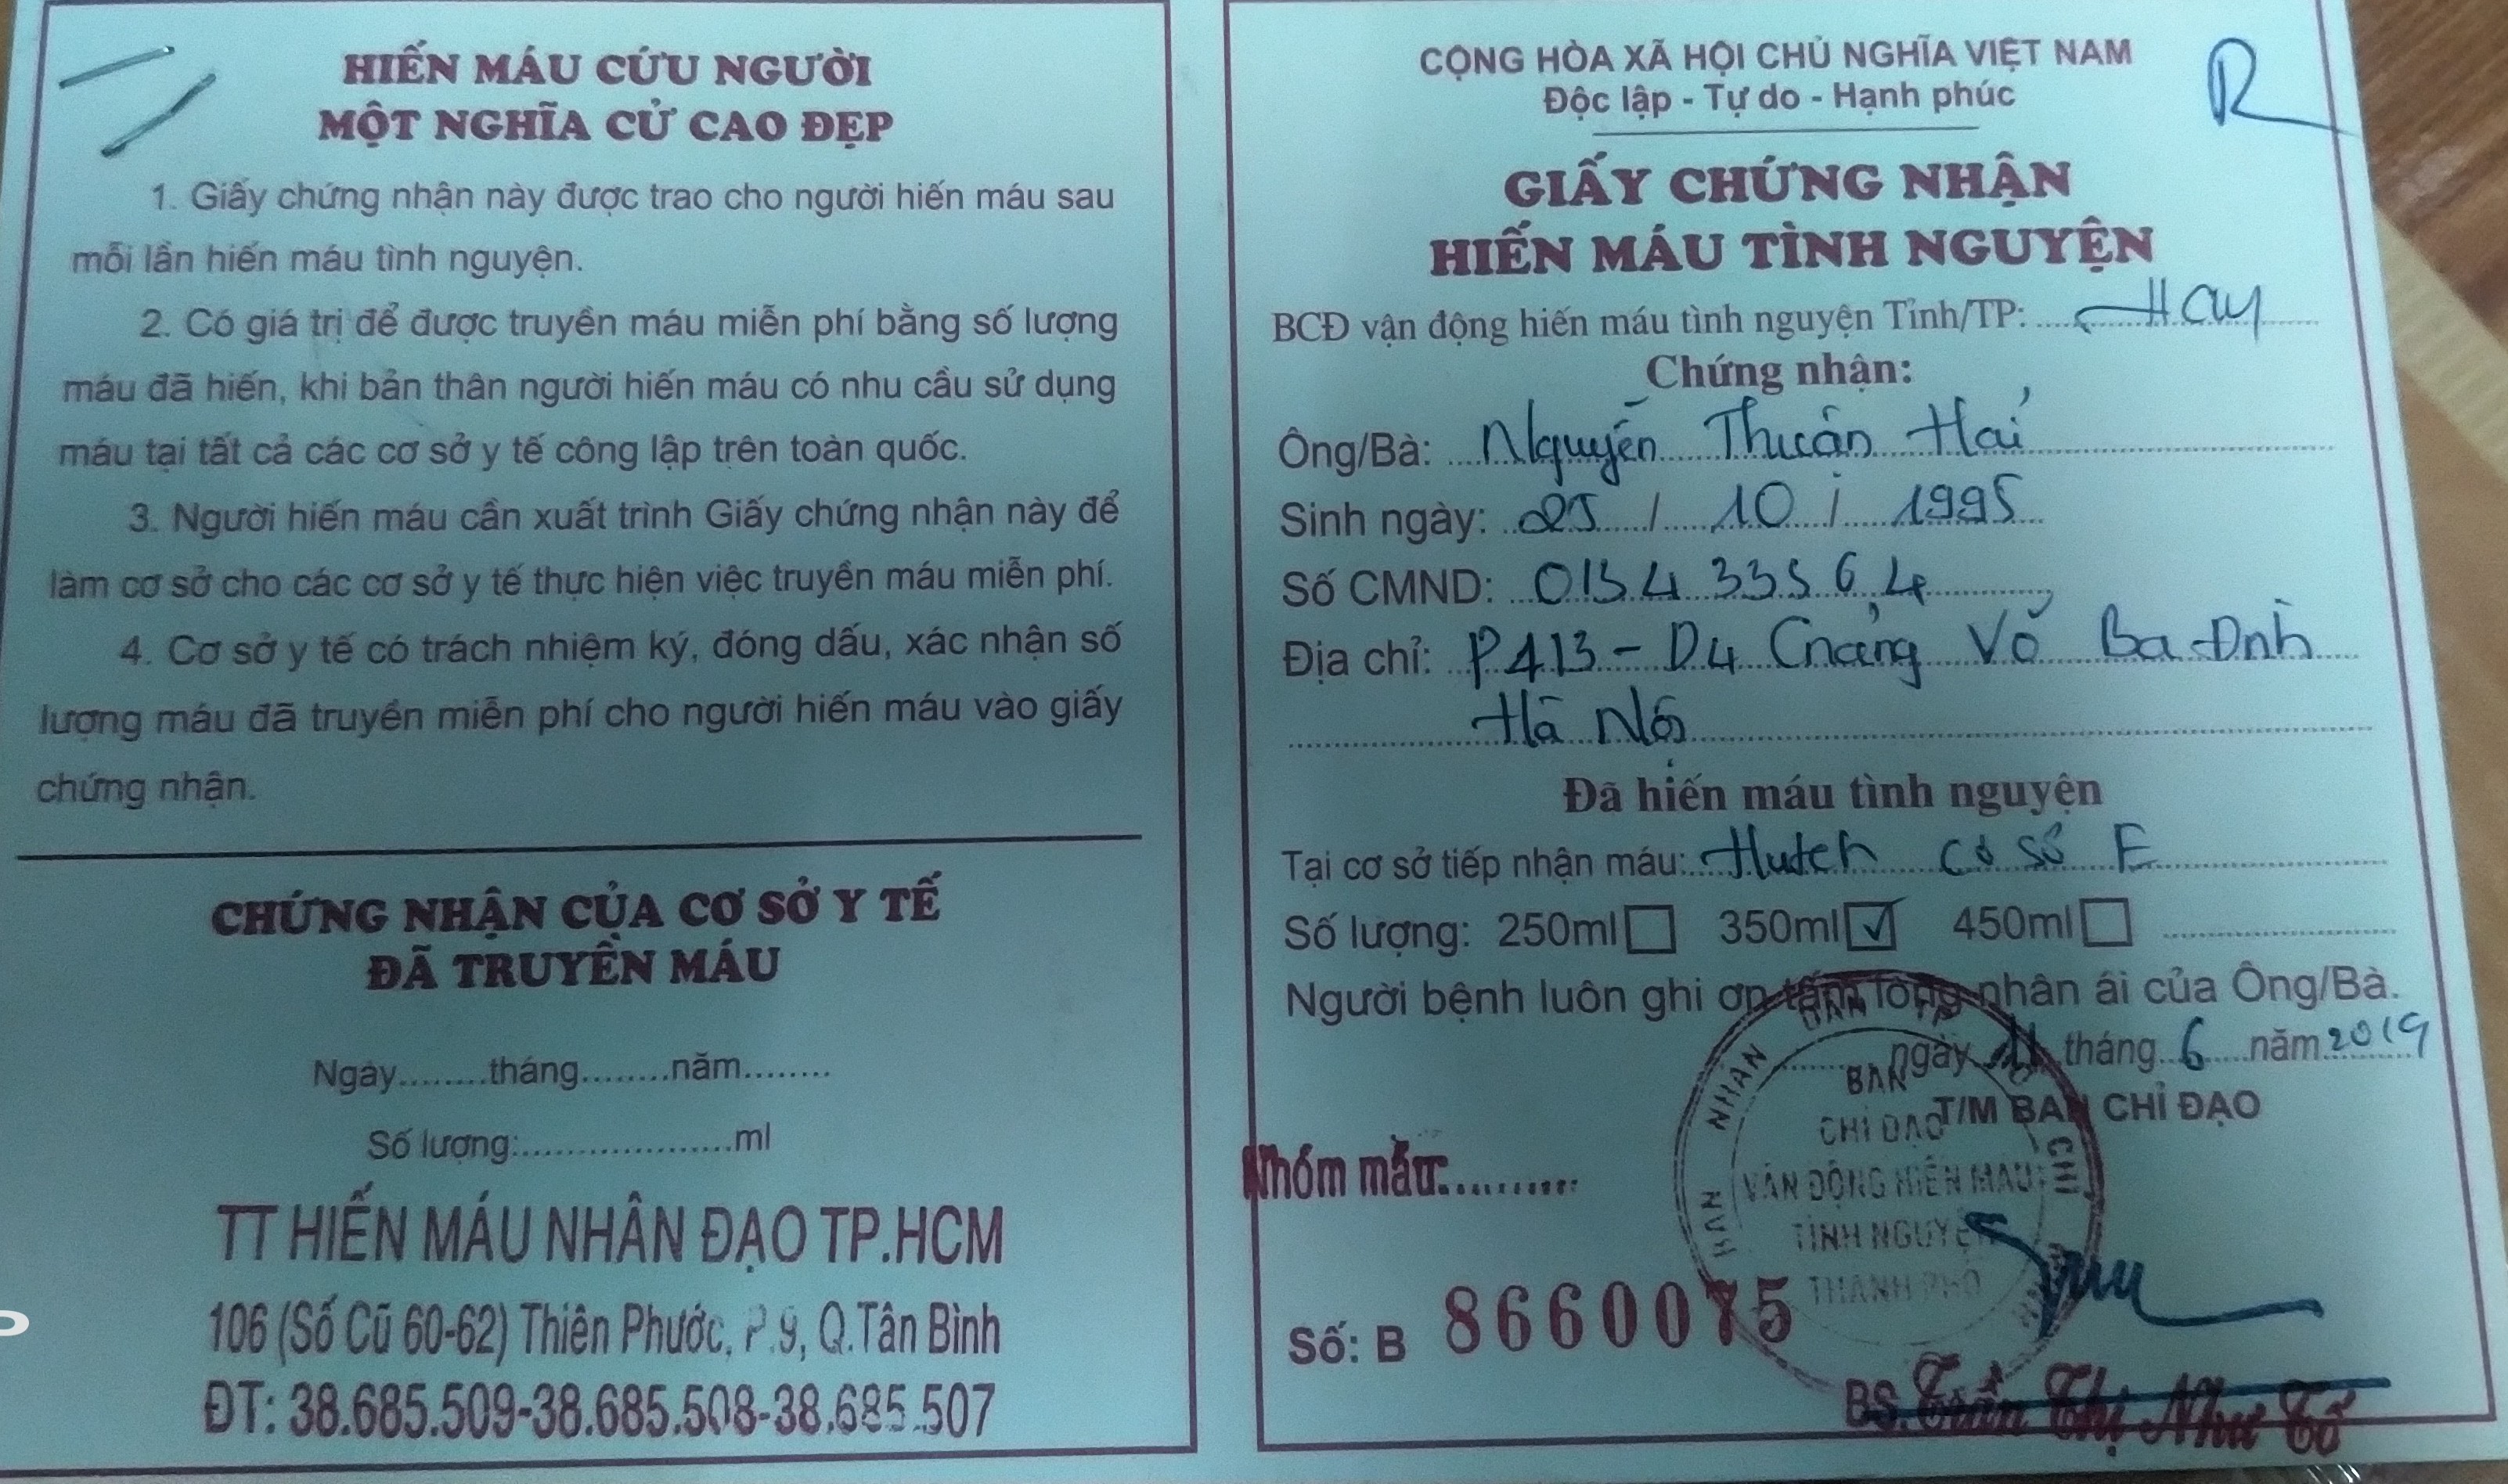 HIẾN MÁU CỨU NGƯỜI
MỘT NGHĨA CỬ CAO ĐẸP
1. Giấy chứng nhận này được trao cho người hiến máu sau
mỗi lần hiến máu tình nguyện.
2. Có giá trị để được truyền máu miễn phí bằng số lượng
máu đã hiến, khi bản thân người hiến máu có nhu cầu sử dụng
máu tại tất cả các cơ sở y tế công lập trên toàn quốc.
3. Người hiến máu cần xuất trình Giấy chứng nhận này để
làm cơ sở cho các cơ sở y tế thực hiện việc truyền máu miễn phí.
4. Cơ sở y tế có trách nhiệm ký, đóng dấu, xác nhận số
lượng máu đã truyền miễn phí cho người hiến máu vào giấy
chứng nhận.
CHỨNG NHẬN CỦA CƠ SỞ Y TẾ
ĐÃ TRUYỀN MÁU
Ngày........tháng........năm........
Số lượng:....................ml
TT HIẾN MÁU NHÂN ĐẠO TP.HCM
106 (Số Cũ 60-62) Thiên Phước, P.9, Q.Tân Bình
ĐT: 38.685.509-38.685.508-38.685.507
R
CỘNG HÒA XÃ HỘI CHỦ NGHĨA VIỆT NAM
Độc lập - Tự do - Hạnh phúc
GIẤY CHỨNG NHẬN
HIẾN MÁU TÌNH NGUYỆN
BCĐ vận động hiến máu tình nguyện Tỉnh/TP:
Chứng nhận:
Ông/Bà: Nguyễn Thuận Hải
Sinh ngày: 25 / 10 / 1995
Số CMND: 013433564
Địa chỉ: P413 - D4 Giảng Võ Ba Đình
Hà Nội
Đã hiến máu tình nguyện
Tại cơ sở tiếp nhận máu: Hutech cơ sở E
Số lượng: 250ml 350ml ✓ 450ml
Người bệnh luôn ghi ơn tấm lòng nhân ái của Ông/Bà.
ngày 11 tháng 6 năm 2019
T/M BAN CHỈ ĐẠO
BAN
CHỈ ĐẠO
VẬN ĐỘNG HIẾN MÁU
TÌNH NGUYỆN
THÀNH PHỐ
Nhóm máu:..........
Số: B 8660075
BS. Trần Thị Như Tố